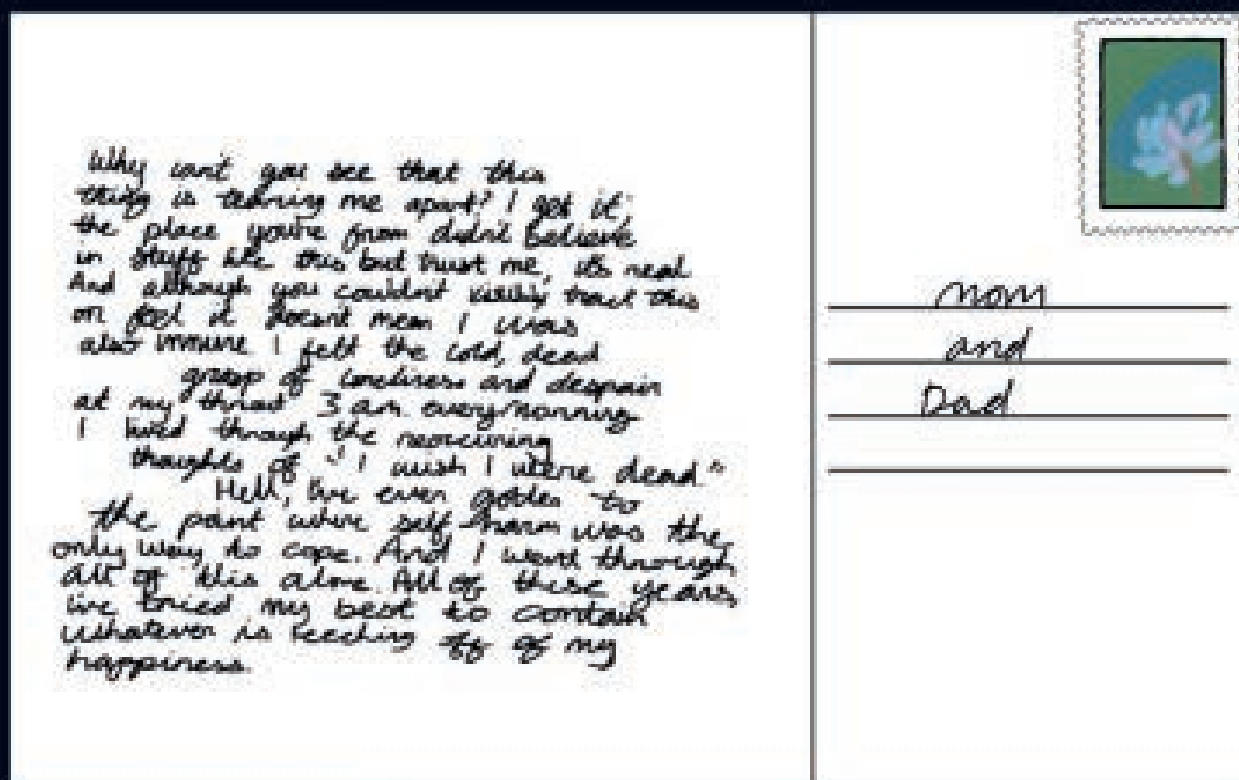 Why can't you see that this
thing is tearing me apart? I get it
the place you're from didn't believe
in stuff like this but trust me, it's real
And although you couldn't visibly this
or feel it doesn't mean I was
also immune I felt the cold, dead
grasp of loneliness and despair
at my throat 3 am every morning
I lived through the reoccuring
thoughts of "I wish I were dead"
Hell, I've even gotten to
the point where self-harm was the
only way to cope. And I went through
all of this alone. All of these years,
I've tried my best to contain
whatever is leeching off of my
happiness.
mom
and
Dad